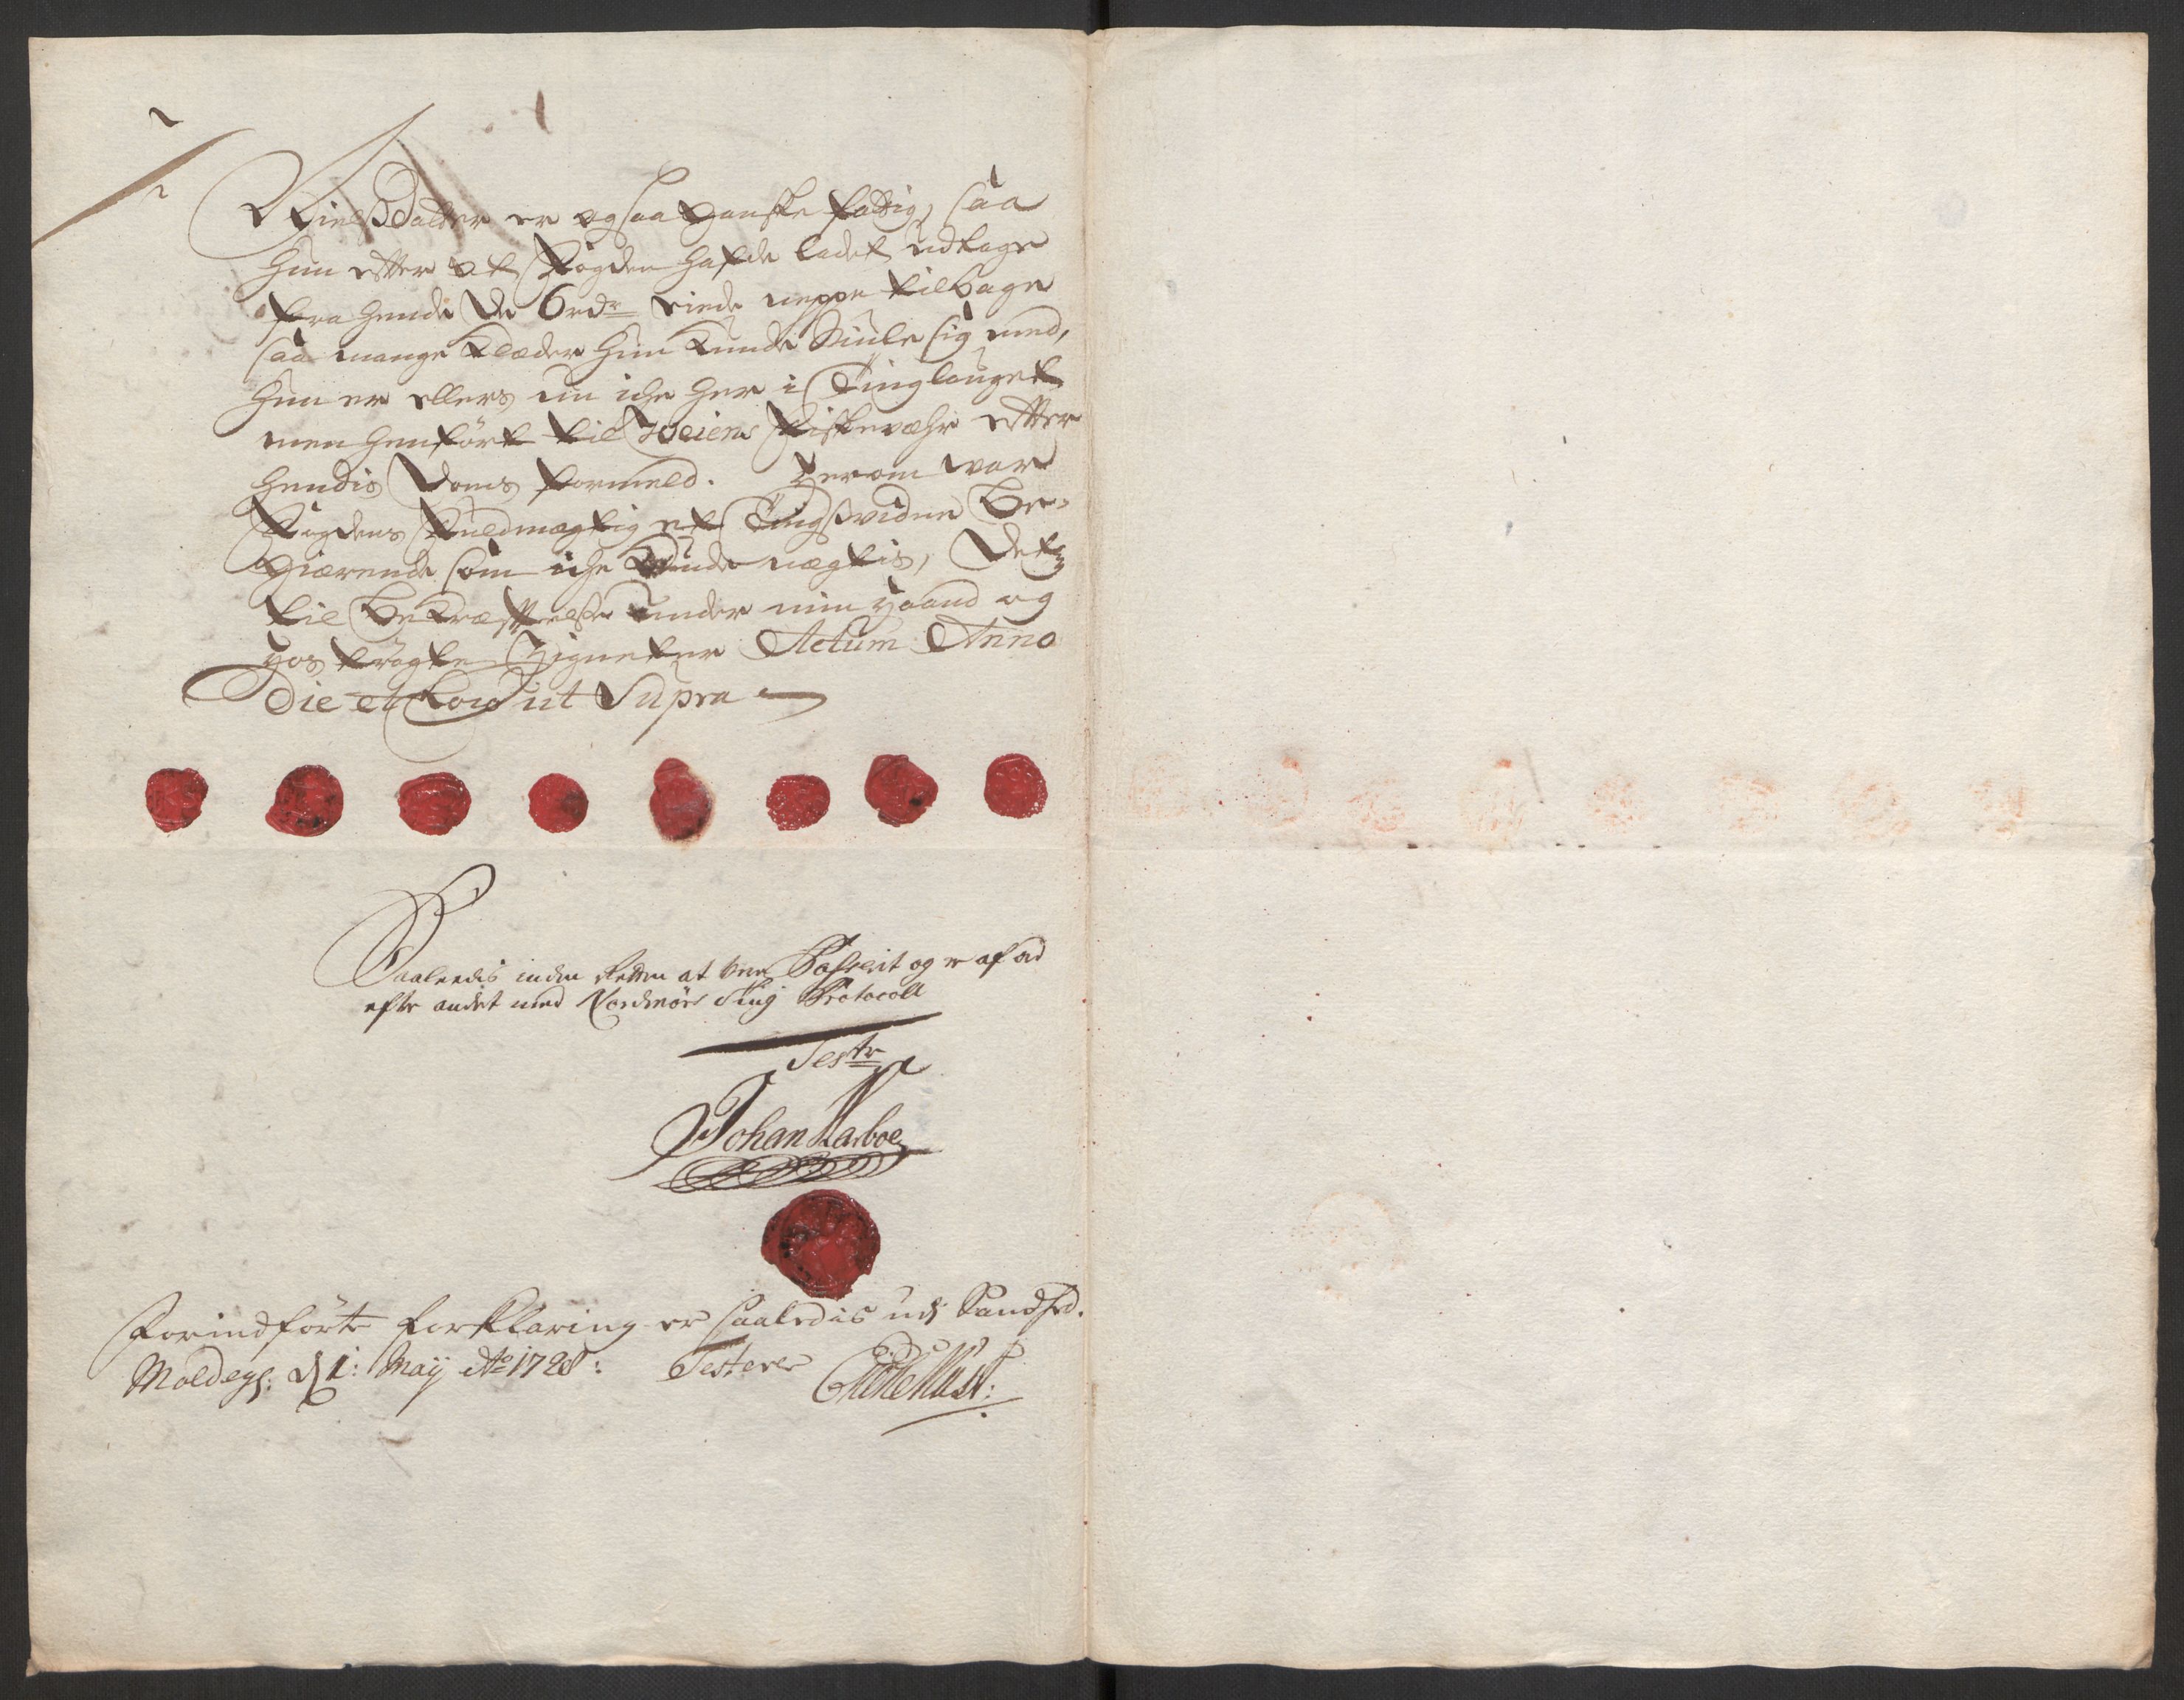 NielsDatter er ogsaa ganske fattig, saa
hun etter at Fogden hafde ladet udtage
fra hende de 6 rdr viede neppe tilbage
saa mange Klæder hun kunde skiule sig med,
hun er ellers nu iche her i Tinglauget
men henført til Weiens Fiskevæhr etter
hendis Doms formeld. Herom war
Fogdens Fuldmægtig et Tingsvidne Be-
giærende som iche kunde nægtis, Det
til Bekræftelse under min Haand og
hos trøgte Zigneter Actum Anno
Die et Loco ut Supra
Saaledis inden Retten at være Passerit og er af ord
efter andet med Nordmørs Ting Protocoll
Tester
Johan Karboe
Forindførte forklaring er saaledis udj Sandhed.
Moldegs: d 1: Maÿ Ao 1728: Testerer